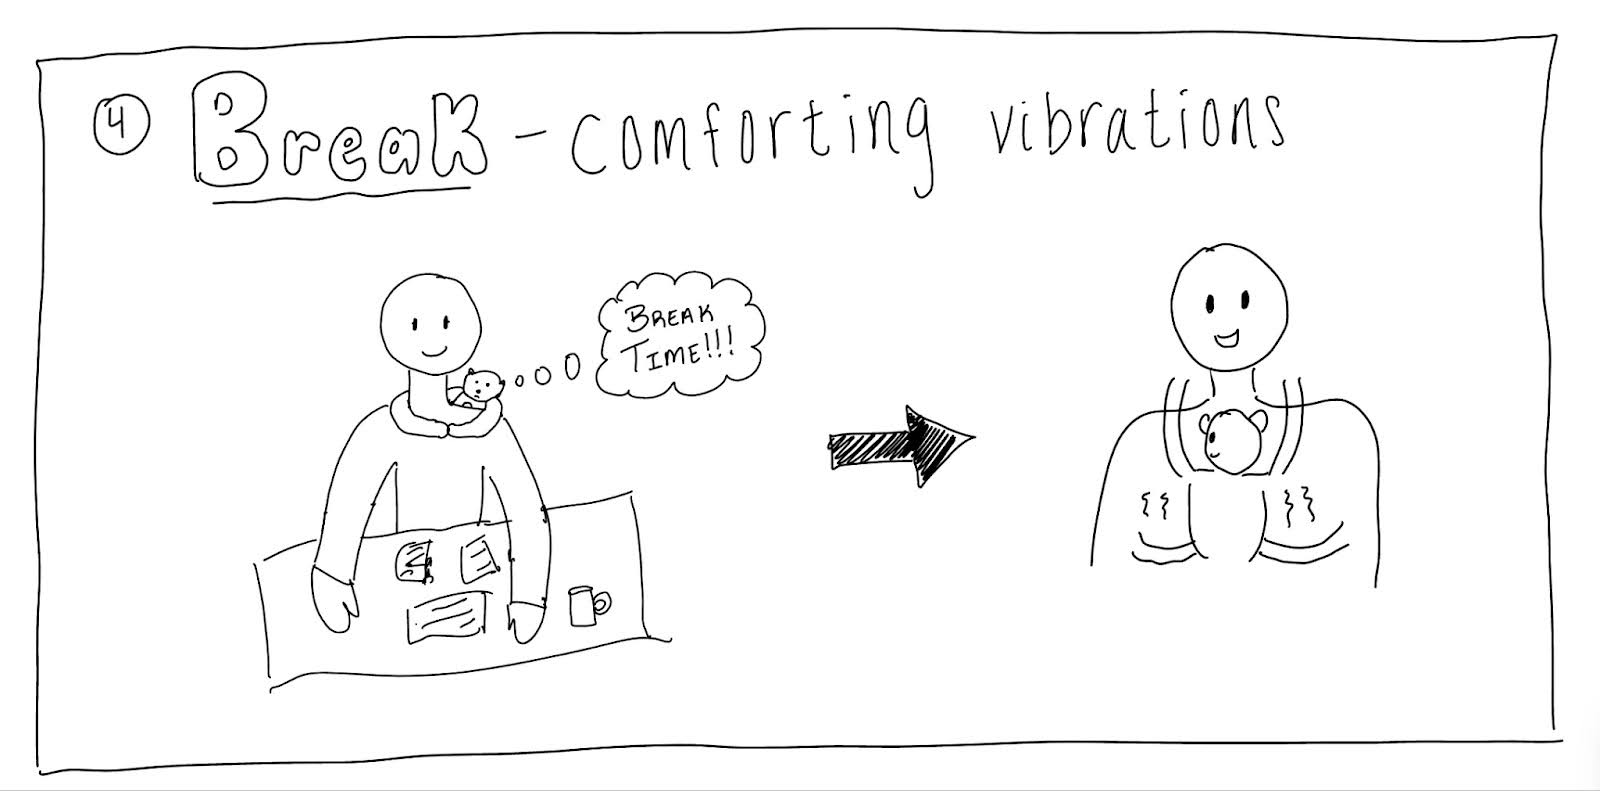 4 Break - comforting vibrations
BREAK
TIME!!!